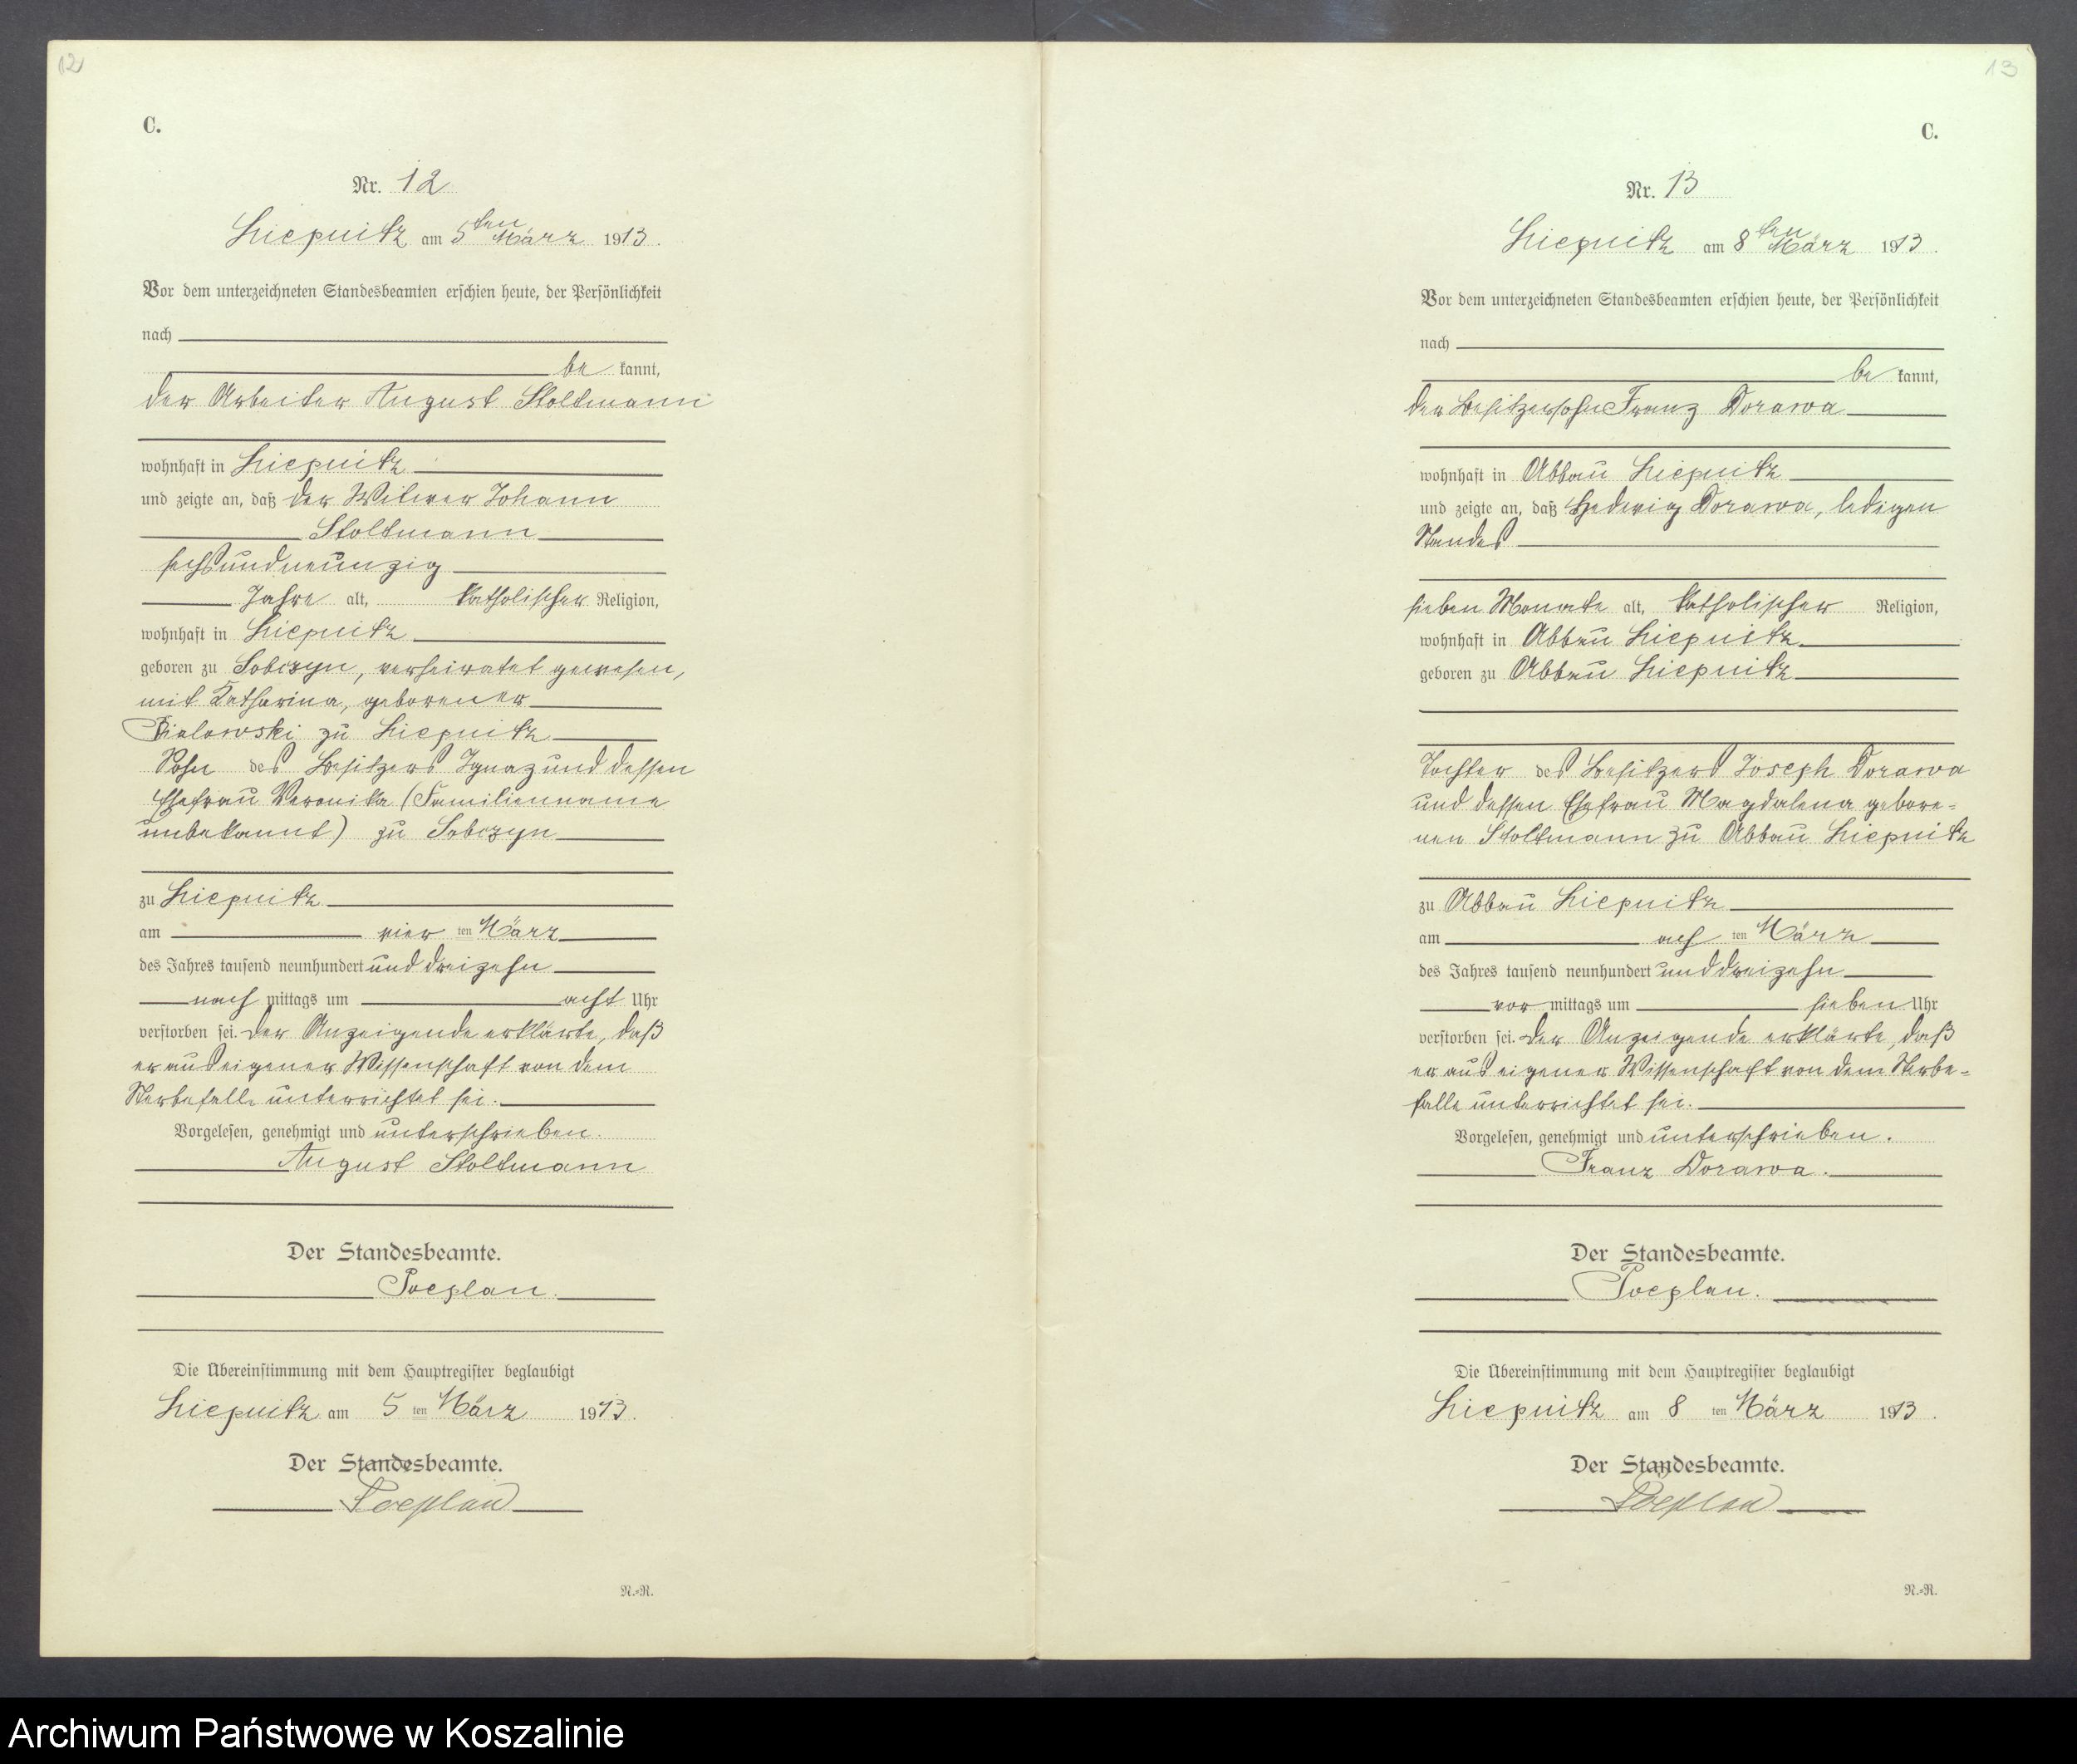 12
C.
Nr. 12
Liepnitz am 5ten März 1913.
Vor dem unterzeichneten Standesbeamten erschien heute, der Persönlichkeit
nach
be kannt,
der Arbeiter August Stoltmann
wohnhaft in Liepnitz
und zeigte an, daß der Witwer Johann
Stoltmann
sechsundneunzig
Jahre alt, katholischer Religion,
wohnhaft in Liepnitz
geboren zu Sobczyn, verheiratet gewesen,
mit Katharina, geborener
zu Liepnitz
Sohn des Besitzers Ignaz und dessen
Ehefrau Veronika (Familienname
unbekannt) zu Sobczyn
zu Liepnitz
am vier ten März
des Jahres tausend neunhundert und dreizehn
nach mittags um acht Uhr
verstorben sei. Der Anzeigende erklärte, daß
er aus eigener Wissenschaft von dem
Sterbefalle unterrichtet sei.
Vorgelesen, genehmigt und unterschrieben.
August Stoltmann
Der Standesbeamte.
Poeplau.
Die Übereinstimmung mit dem Hauptregister beglaubigt
Liepnitz am 5 ten März 1913.
Der Standesbeamte.
Poeplau
N.=R.
13
C.
Nr. 13
Liepnitz am 8ten März 1913.
Vor dem unterzeichneten Standesbeamten erschien heute, der Persönlichkeit
nach
be kannt,
der Besitzersohn Franz Dorawa
wohnhaft in Abbau Liepnitz
und zeigte an, daß Hedwig Dorawa, ledigen
Standes
sieben Monate alt, katholischer Religion,
wohnhaft in Abbau Liepnitz
geboren zu Abbau Liepnitz
Tochter des Besitzers Joseph Dorawa
und dessen Ehefrau Magdalena gebore=
nen Stoltmann zu Abbau Liepnitz
zu Abbau Liepnitz
am ach ten März
des Jahres tausend neunhundert und dreizehn
vor mittags um sieben Uhr
verstorben sei. Der Anzeigende erklärte, daß
er aus eigener Wissenschaft von dem Sterbe=
falle unterrichtet sei.
Vorgelesen, genehmigt und unterschrieben.
Franz Dorawa.
Der Standesbeamte.
Poeplau.
Die Übereinstimmung mit dem Hauptregister beglaubigt
Liepnitz am 8 ten März 1913.
Der Standesbeamte.
Poeplau
N.=R.
Archiwum Państwowe w Koszalinie